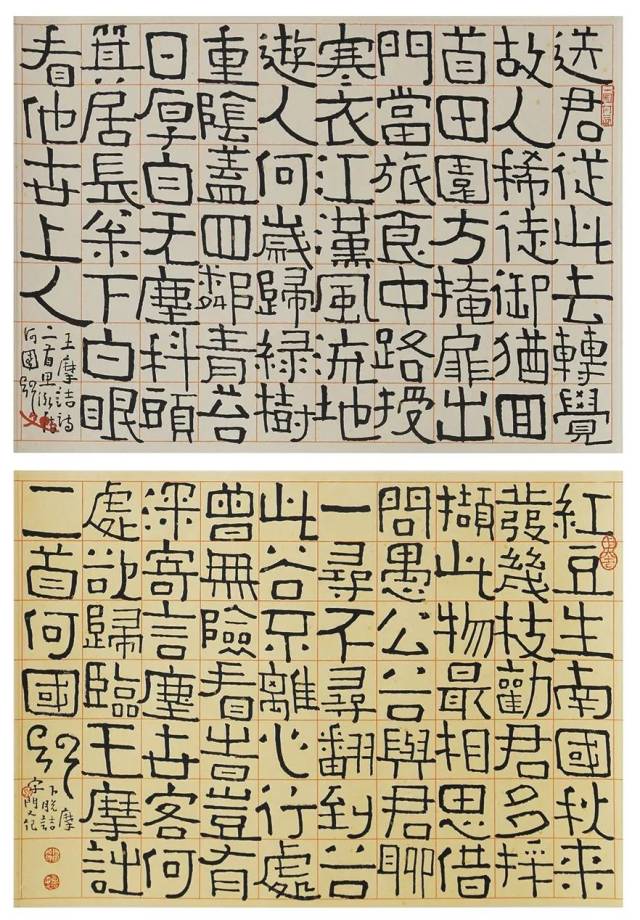 送君從此去轉覺
故人稀徒御猶回
首田園方掩扉出
門當旅食中路授
寒衣江漢風流地
遊人何歲歸綠樹
重陰蓋四鄰青苔
日厚自无塵科頭
箕居長枀下白眼
看他世上人
王摩詰詩
二首
何國門
紅豆生南國秋來
發幾枝勸君多採
擷此物最相思借
問愚公谷與君聊
一尋不尋翻到谷
此谷不離心行處
曾無險看旹豈有
深寄言塵世客何
處欲歸臨王摩詩
二首何國門
摩
下脫詰
字門又記